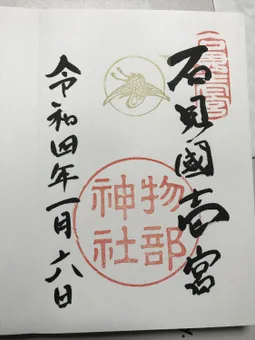 石見國壱宮
物部
神社
令和四年一月六日